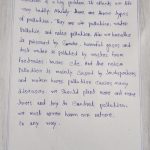 Pollution is a big problem. It affects our life
very badly. Mainly there are three types
of pollution. They are air pollution, water
Pollution and noise pollution. Air we breathe
is poisoned by smoke, harmful gases and
but water is polluted by wastes from
Factories house etc. And the noise
Pollution is mainly caused by loudspeakers
and motor horns. pollution causes many
diseases. We should plant more and more
trees and try to control pollution.
we must never harm our nature
in any way.